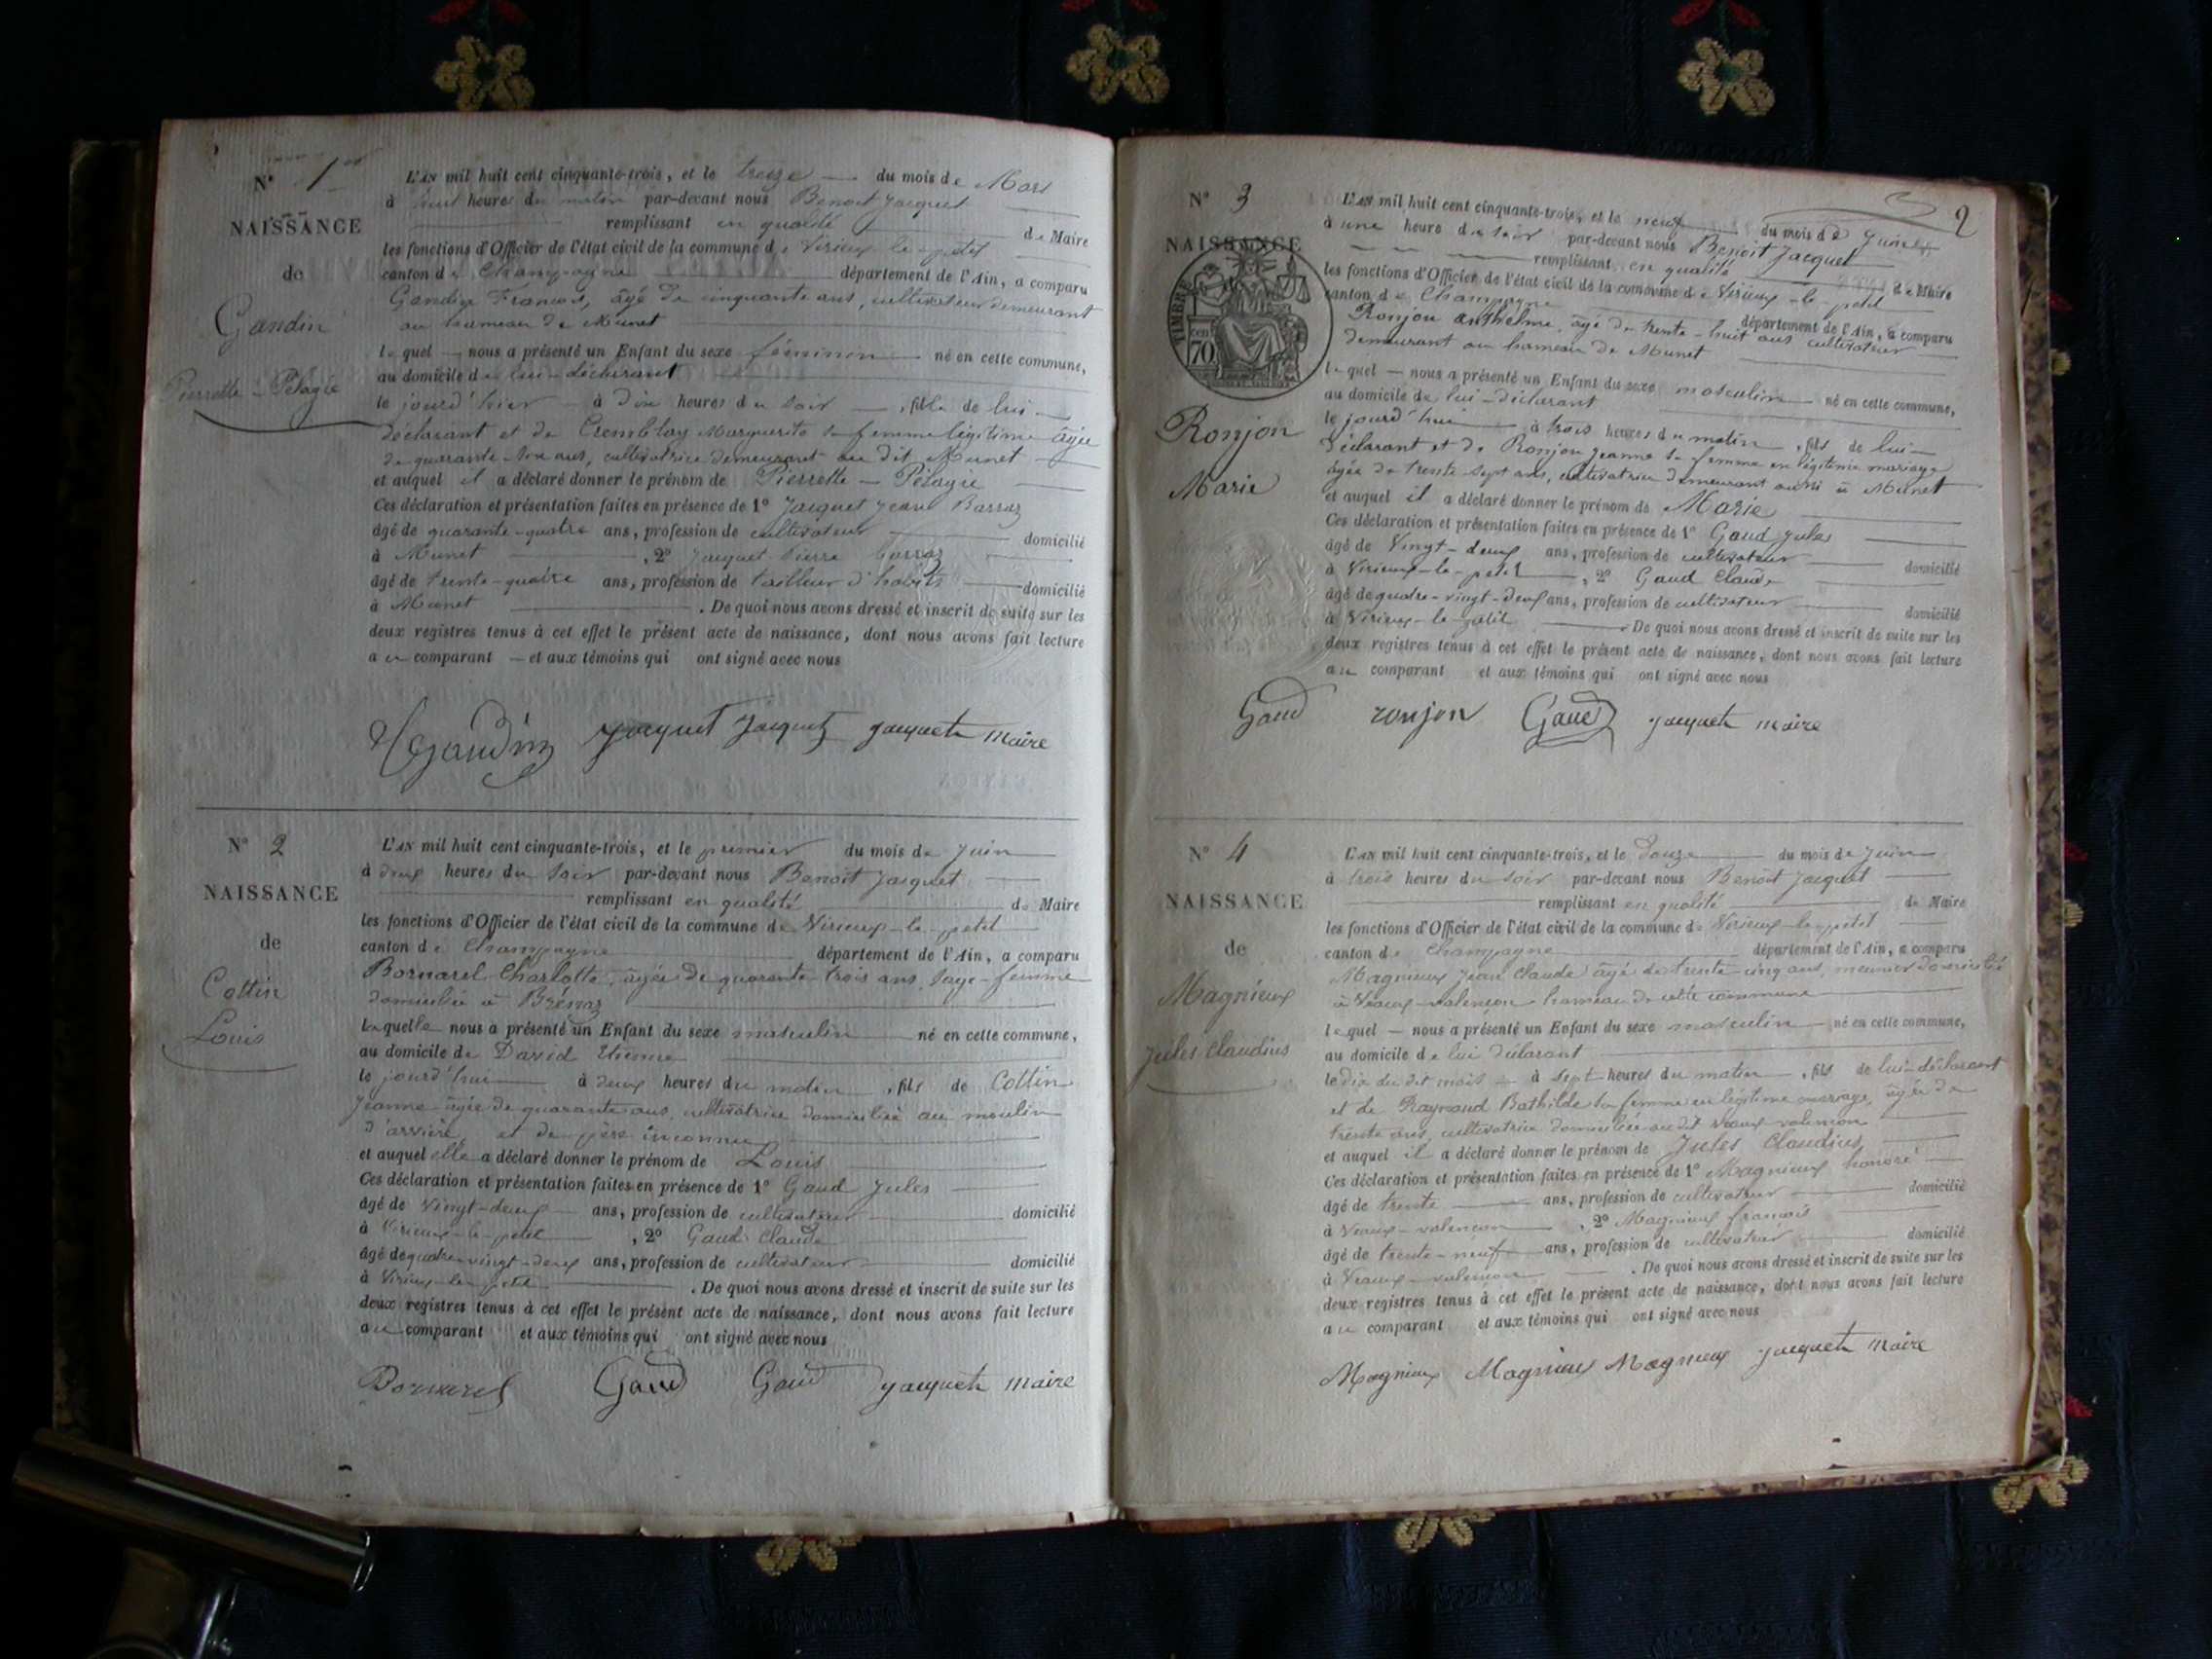 N° 1er
NAISSANCE
de
Gandin
Pierrette - Pélagie
L'AN mil huit cent cinquante-trois, et le treize du mois de Mars
à huit heures du matin par-devant nous Benoit Jacquet
remplissant en qualité de Maire
les fonctions d'Officier de l'état civil de la commune de Virieux-le-petit
canton de Champagne département de l'Ain, a comparu
Gandin François, âgé de cinquante ans, cultivateur demeurant
au hameau de Munet
lequel nous a présenté un Enfant du sexe féminin né en cette commune,
au domicile de lui-déclarant
le jourd'hier à dix heures du soir, fille de lui
déclarant et de Marguerite sa femme légitime âgée
de quarante ans, cultivatrice demeurant au dit Munet
et auquel il a déclaré donner le prénom de Pierrette - Pélagie
Ces déclaration et présentation faites en présence de 1° Jacquet Jean Barraz
âgé de quarante-quatre ans, profession de cultivateur domicilié
à Munet, 2° Jacquet Pierre barraz
âgé de trente-quatre ans, profession de tailleur d'habits domicilié
à Munet. De quoi nous avons dressé et inscrit de suite sur les
deux registres tenus à cet effet le présent acte de naissance, dont nous avons fait lecture
au comparant et aux témoins qui ont signé avec nous
Gandin Jacquet Jacquet Jacquet maire
N° 2
NAISSANCE
de
Cottin
Louis
L'AN mil huit cent cinquante-trois, et le premier du mois de Juin
à deux heures du soir par-devant nous Benoit Jacquet
remplissant en qualité de Maire
les fonctions d'Officier de l'état civil de la commune de Virieux-le-petit
canton de Champagne département de l'Ain, a comparu
Bornarel Charlotte, âgée de quarante-trois ans, sage-femme
domiciliée à Brénaz
laquelle nous a présenté un Enfant du sexe masculin né en cette commune,
au domicile de David Etienne
le jourd'hui à deux heures du matin, fils de Cottin
Jeanne âgée de quarante ans, cultivatrice domiciliée au moulin
d'arvière, et de père inconnu
et auquel elle a déclaré donner le prénom de Louis
Ces déclaration et présentation faites en présence de 1° Gaud Jules
âgé de vingt-deux ans, profession de cultivateur domicilié
à Virieux-le-petit, 2° Gaud Claude
âgé de quatre-vingt-deux ans, profession de cultivateur domicilié
à Virieux-le-petit. De quoi nous avons dressé et inscrit de suite sur les
deux registres tenus à cet effet le présent acte de naissance, dont nous avons fait lecture
au comparant et aux témoins qui ont signé avec nous
Bornarel Gaud Gaud Jacquet maire
2
N° 3
NAISSANCE
TIMBRE
70 cen
Ronjon
Marie
L'AN mil huit cent cinquante-trois, et le neuf du mois de Juin
à une heure du soir par-devant nous Benoit Jacquet
remplissant en qualité de Maire
les fonctions d'Officier de l'état civil de la commune de Virieux-le-petit
canton de Champagne département de l'Ain, a comparu
Ronjon anthelme, âgé de trente-huit ans cultivateur
demeurant au hameau de Munet
lequel nous a présenté un Enfant du sexe masculin né en cette commune,
au domicile de lui-déclarant
le jourd'hui à trois heures du matin, fils de lui
déclarant et de Ronjon Jeanne sa femme en légitime mariage
âgée de trente sept ans, cultivatrice demeurant aussi à Munet
et auquel il a déclaré donner le prénom de Marie
Ces déclaration et présentation faites en présence de 1° Gaud Jules
âgé de vingt-deux ans, profession de cultivateur domicilié
à Virieux-le-petit, 2° Gaud Claude
âgé de quatre-vingt-deux ans, profession de cultivateur domicilié
à Virieux-le-petit. De quoi nous avons dressé et inscrit de suite sur les
deux registres tenus à cet effet le présent acte de naissance, dont nous avons fait lecture
au comparant et aux témoins qui ont signé avec nous
Gaud ronjon Gaud Jacquet maire
N° 4
NAISSANCE
de
Magnieux
Jules Claudius
L'AN mil huit cent cinquante-trois, et le douze du mois de Juin
à trois heures du soir par-devant nous Benoit Jacquet
remplissant en qualité de Maire
les fonctions d'Officier de l'état civil de la commune de Virieux-le-petit
canton de Champagne département de l'Ain, a comparu
Magnieux Jean Claude âgé de trente cinq ans, meunier domicilié
à Vaux-valençon hameau de cette commune
lequel nous a présenté un Enfant du sexe masculin né en cette commune,
au domicile de lui déclarant
le dix du dit mois à sept heures du matin, fils de lui-déclarant
et de Raymond Bathilde sa femme en légitime mariage, âgée de
trente ans, cultivatrice domiciliée au dit
et auquel il a déclaré donner le prénom de Jules Claudius
Ces déclaration et présentation faites en présence de 1° Magnieux honoré
âgé de trente ans, profession de cultivateur domicilié
à, 2° Magnieux françois
âgé de trente-neuf ans, profession de cultivateur domicilié
à. De quoi nous avons dressé et inscrit de suite sur les
deux registres tenus à cet effet le présent acte de naissance, dont nous avons fait lecture
au comparant et aux témoins qui ont signé avec nous
Magnieux Magnieux Magnieux Jacquet maire